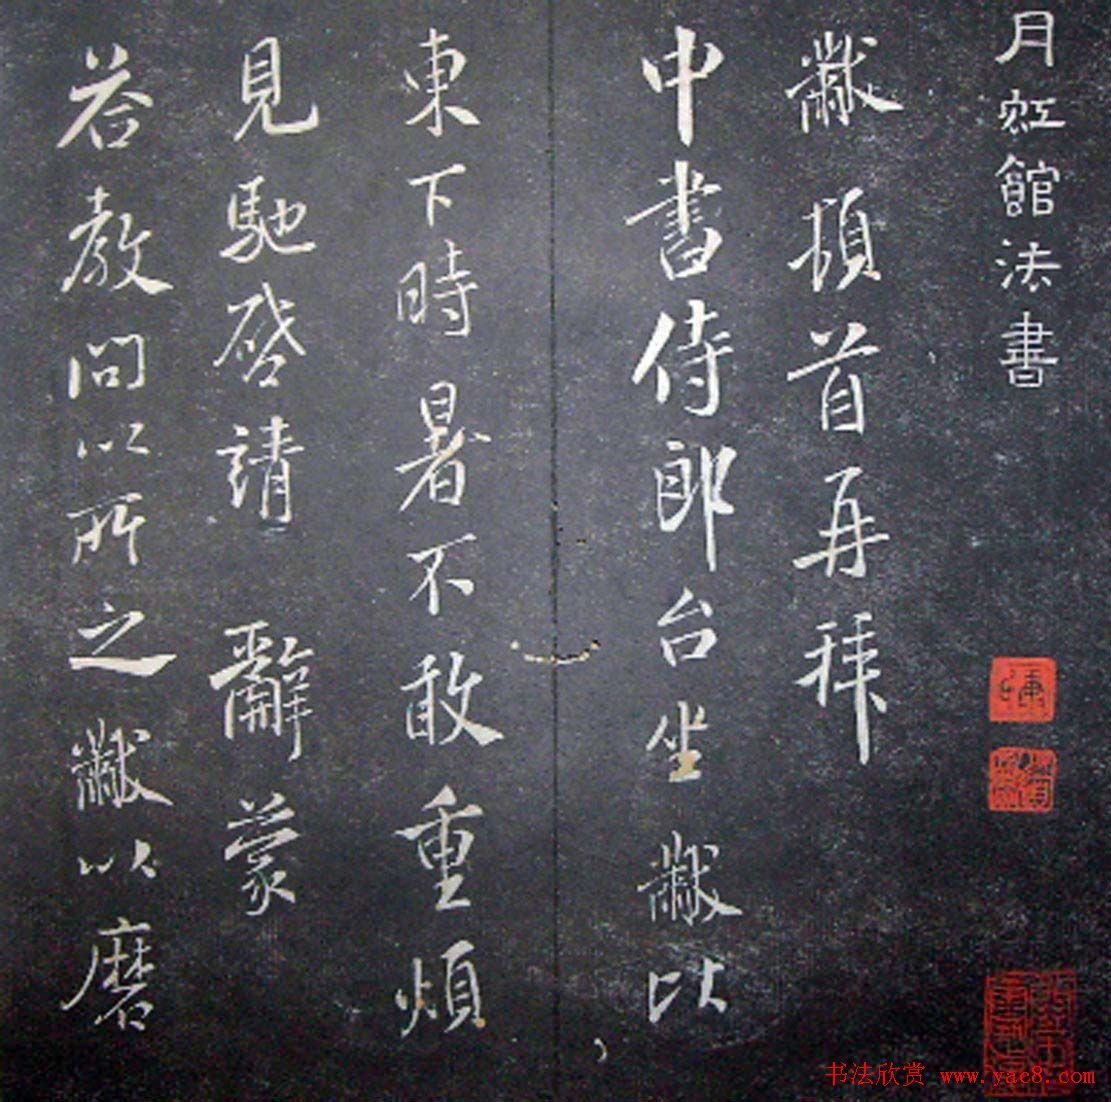 月虹館法書
黻頓首再拜
中書侍郎台坐黻以
東下時暑不敢重煩
見馳啓請辭蒙
答教問以所之黻以磨
书法欣赏 www.yac8.com